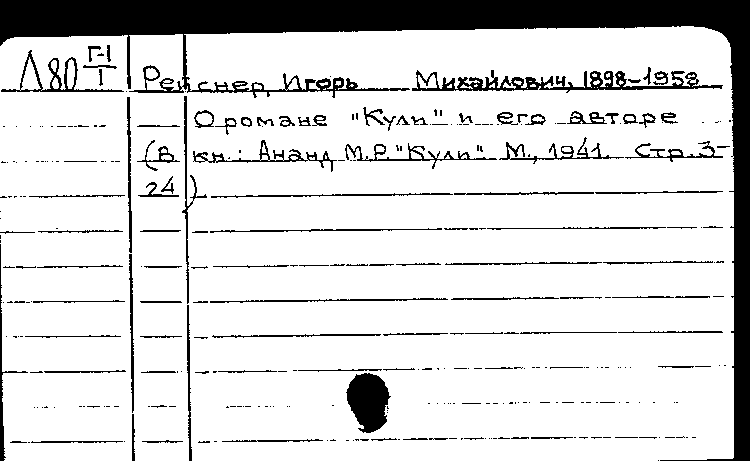 Л80 Г-I/I Рейснер, Игорь Михайлович, 1898-1958
О романе "Кули" и его авторе
(В кн.: Ананд М.Р. "Кули". М., 1941. Стр. 3-
24)